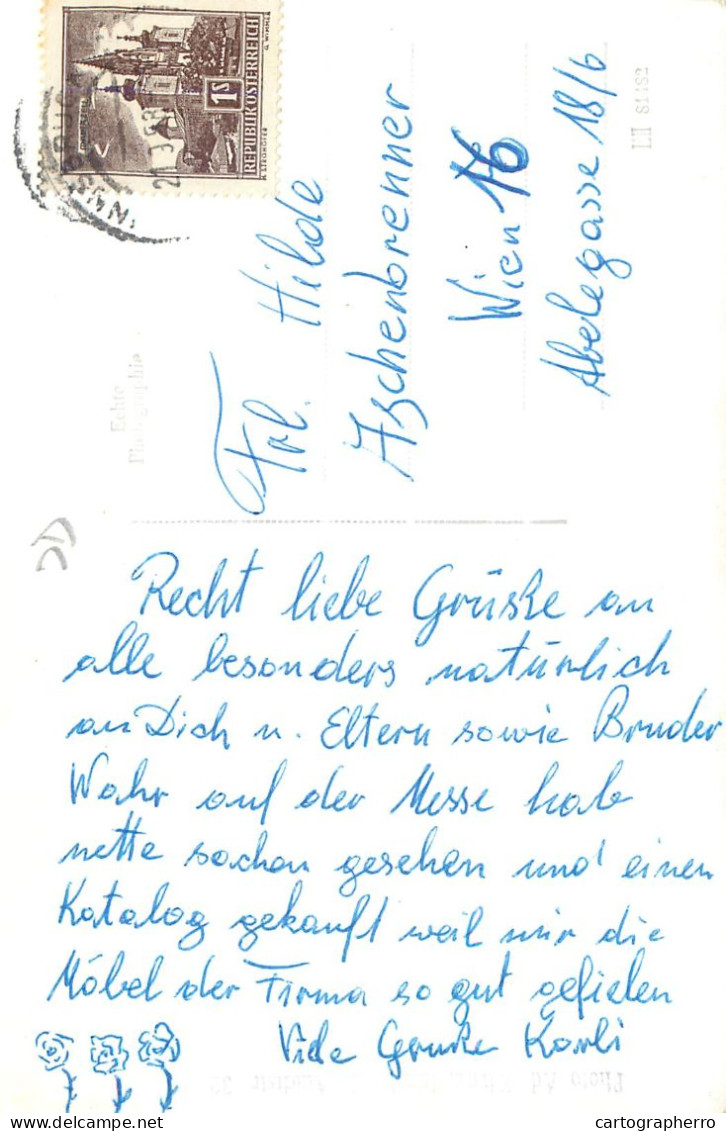 REPUBLIK ÖSTERREICH
1S
Frl. Hilde
Aschenbrenner
Wien 16
Abelegasse 18/6
Echte
Photographie
Recht liebe Grüske an
alle besonders natürlich
an Dich u. Eltern sowie Bruder
Wahr auf der Messe hab
nette sachen gesehen und einen
Katalog gekauft weil mir die
Möbel der Firma so gut gefielen
Vile Gruske Karli
cartographerro